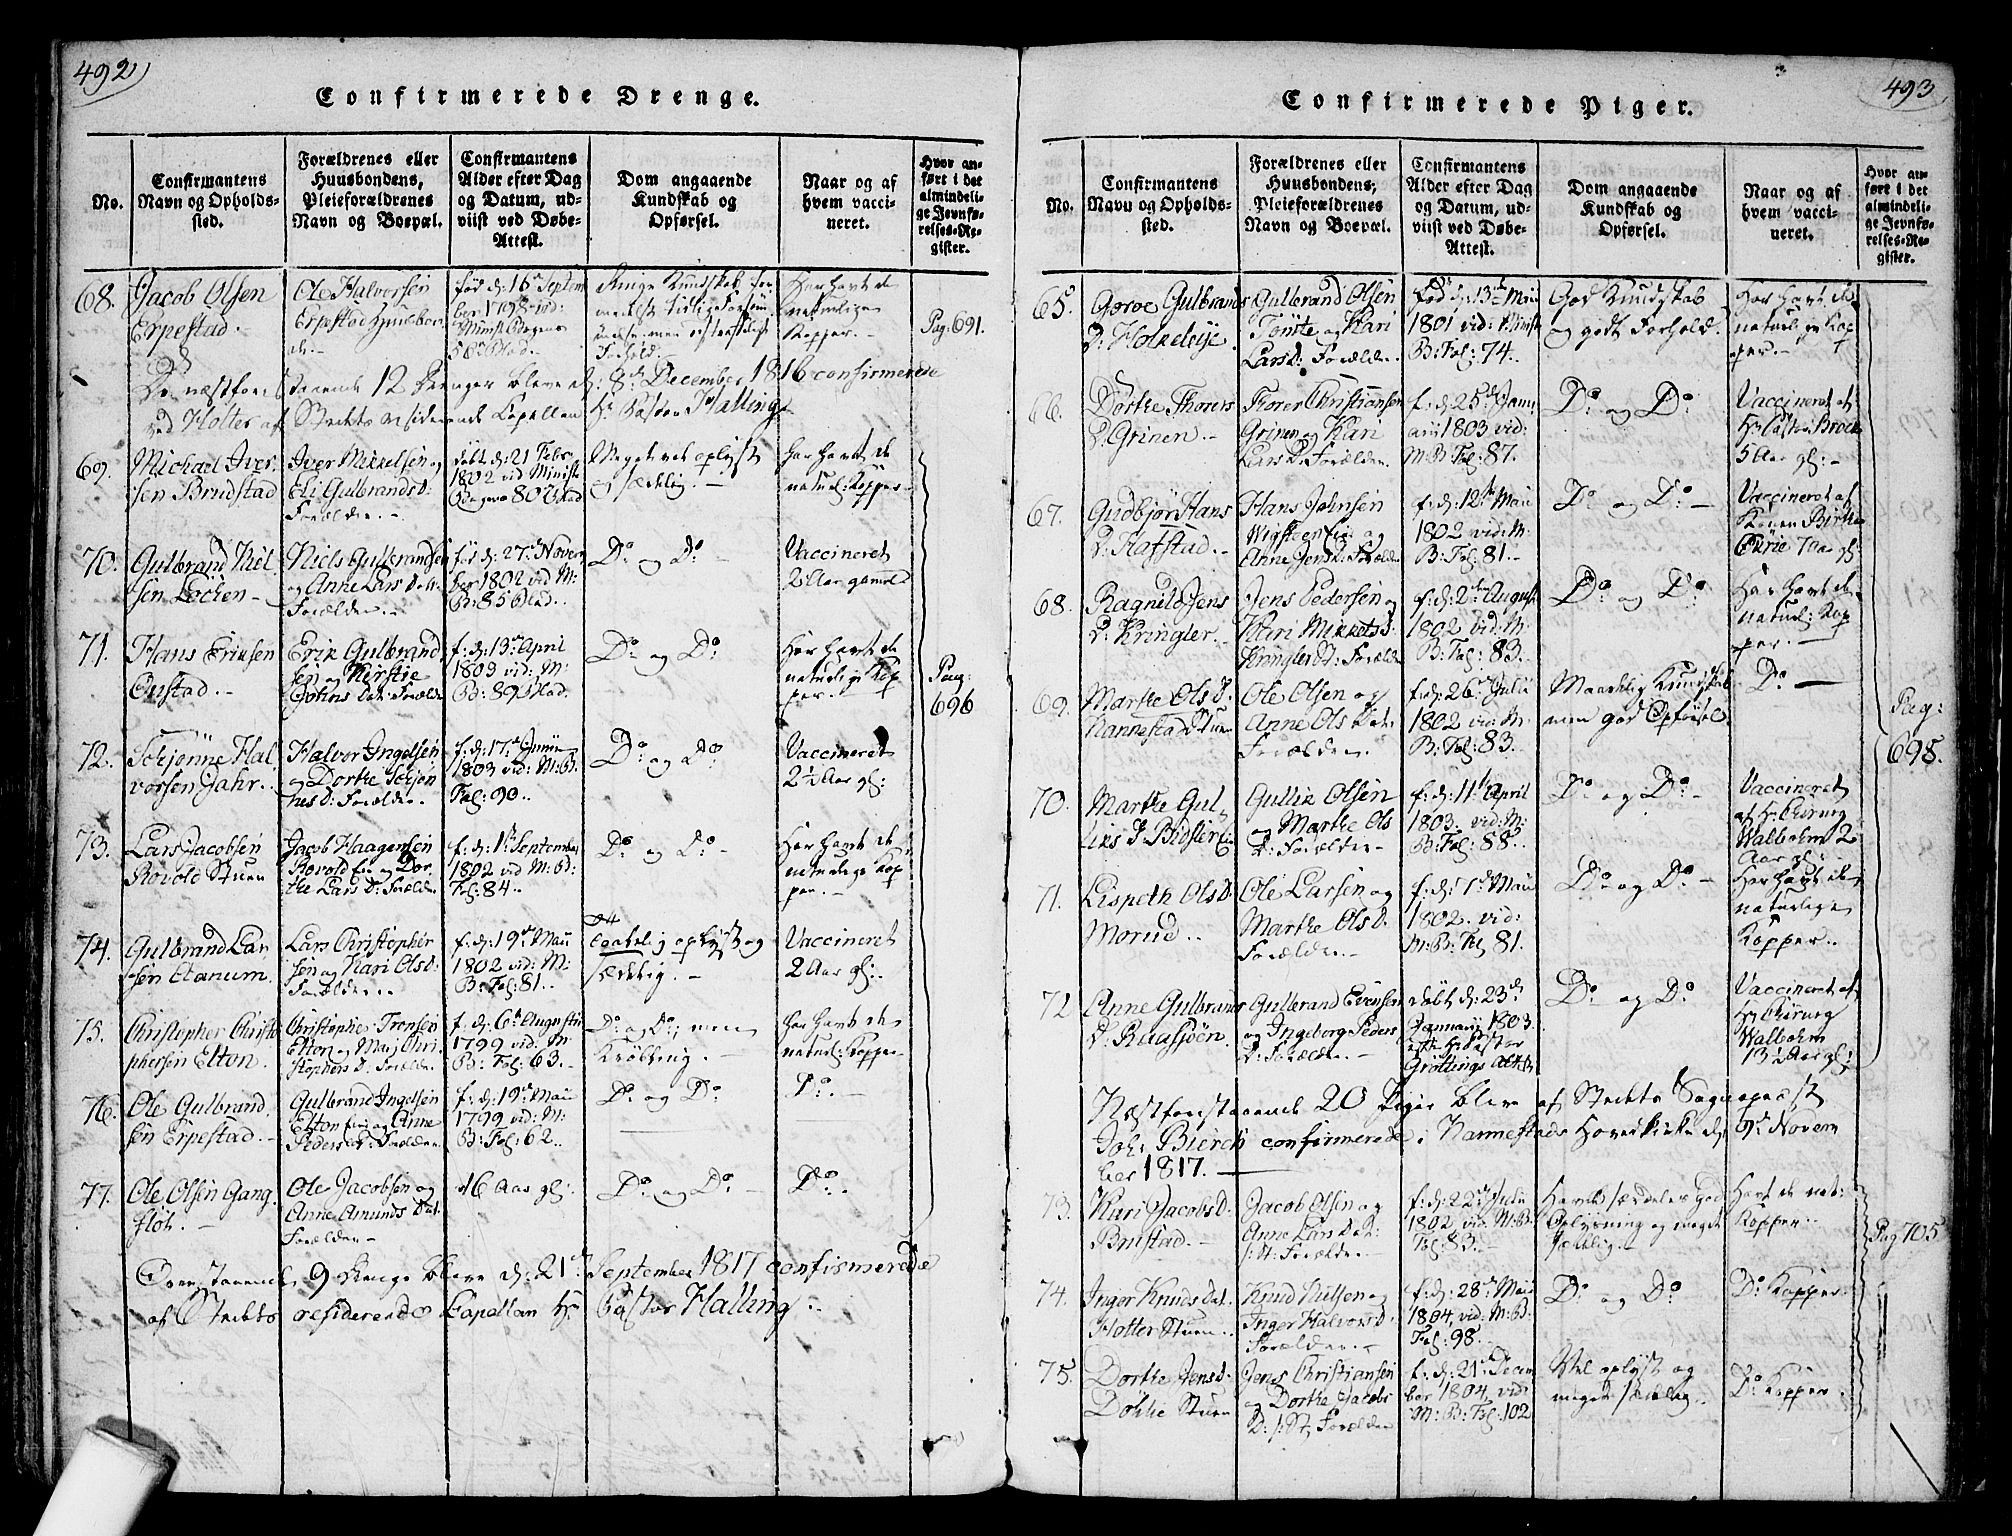 492
Confirmerede Drenge.
No.
Confirmantens
Navn og Opholds-
sted.
Forældrenes eller
Huusbondens,
Pleieforældrenes
Navn og Boepæl.
Confirmantens
Alder efter Dag
og Datum, ud-
viist ved Døbe-
Attest.
Dom angaaende
Kundskab og
Opførsel.
Naar og af
hvem vacci-
neret.
Hvor an-
ført i det
almindeli-
ge Jevnfø-
relses-Re-
gister.
68. Jacob Olsen
Erpestad.
Ole Halvorsen
Erpestad
fød d: 16de Septem
ber 1798 vid:
58de Blad.
Ringe Kundskab
Forhold.
Har havt de
naturlige
Kopper.
Pag: 691.
næstforestaaende 12 Drenge bleve d: 8de December 1816 confirmerede
ved Holter af Stedets residerende Capellan Hr Pastor Halling
69. Michael Iver
sen Brudstad
Iver Mikkelsen og
Eli Gulbrandsd:
Forældre.
døbt d: 21 Febr
1802 vid Minist
80 Blad
Meget vel oplyst
og sædelig.
har havt de
naturl: Kopper
70. Gulbrand Niel
sen Lochen
Niels Gulbrandsen
og Anne Lars Dat.
Forældre.
fød d: 27de Novem
ber 1802 vid M:
B: 85 Blad.
Do og Do
Vaccineret
2 Aar gammel
71. Hans Eriksen
Enstad.
Erik Gulbrand
sen og Kirstie
Dat: Forældre
f: d: 13de April
1803 vid: M:
B: 89 Blad.
Do og Do
Har havt de
naturlige Kop
per.
Pag:
696
72. Schjønne Hal
vorsen Jahr.
Halvor Ingelsen
og Dorthe Schjøn
nes D: Forældre.
f: d: 17de Junii
1803 vid: M: B.
Fol: 90.
Do og Do
Vaccineret
2½ Aar gl:
73. Lars Jacobsen
Rovold Stuen
Jacob Haagensen
Rovold Eie og Dor
the Lars D: Forældre
f: d: 1ste September
1802 vid: M: B:
Fol: 84.
Do og Do
Har havt de
naturlige Kop
per.
74. Gulbrand Lar
sen Etanum.
Lars Christopher
sen og Kari Olsd:
Forældre.
f: d: 19de Maii
1802 vid: M:
B: Fol: 81.
oplyst og
sædelig.
Vaccineret
2 Aar gl:
75. Christopher Christo
phersen Elton.
Christopher Tronsen
Elton og Marj Chri
stophers D: Forældre
f: d: 6te Augustii
1799 vid: M
B: Fol: 63.
Do og Do; men
Krøbling.
har havt de
naturl: Kopper
76. Ole Gulbrand
sen Erpestad.
Gulbrand Ingelsen
Elton Eie og Anne
Peders D: Forældre
f: d: 19de Maii
1799 vid: M:
B: Fol: 62.
Do og Do
Do.
77. Ole Olsen Gang
fløt.
Ole Jacobsen og
Anne Amunds Dat.
Forældre
16 Aar gl:
Do og Do
Do.
Ovenstaaende 9 Drenge bleve d: 21de September 1817 confirmerede
af Stedets residerende Capellan Hr Pastor Halling.
493
Confirmerede Piger.
No.
Confirmantens
Navn og Opholds-
sted.
Forældrenes eller
Huusbondens,
Pleieforældrenes
Navn og Boepæl.
Confirmantens
Alder efter Dag
og Datum, ud-
viist ved Døbe-
Attest.
Dom angaaende
Kundskab og
Opførsel.
Naar og af
hvem vacci-
neret.
Hvor an-
ført i det
almindeli-
ge Jevnfø-
relses-Re-
gister.
65. Gulbrands
D: Holkeleje.
Gulbrand Olsen
Tømte og Kari
Lars D: Forældre.
Fød d: 13de Maii
1801 vid: Minist
B: Fol: 74.
God Kundskab
og godt Forhold.
Har havt de
naturlige Kop
per.
66. Dorthe Thorers
D: Grinen.
Thorer Christiansen
Grinen og Kari
Lars D: Forældre.
f: d: 25de Janu
arii 1803 vid:
M: B: Fol: 87.
Do og Do
Vaccineret af
Brock
5 Aar gl:
67. Gudbjør Hans
D: Hafstad.
Hans Johnsen
Wigsteen Eie og
Anne Jensd: Forældre
f: d: 12te Maii
1802 vid: M:
B: Fol: 81.
Do og Do
Vaccineret af
Konen Birthe
Ekrie 7 Aar gl:
68. Ragnild Jens
D: Kringler.
Jens Pedersen og
Kari Mikkelsd:
Kringlerd: Forældre
f: d: 2den August
1802 vid: M:
B: Fol: 83.
Do og Do
Har havt de
naturl: Kop
per.
69. Marthe Ols D.
Nannestad Stuen
Ole Olsen og
Anne Ols Dat.
Forældre.
f: d: 26de Julii
1802 vid: M:
B: Fol: 83.
Maadelig Kundskab
men god Opførsel
Do
Pag:
698.
70. Marthe Gul
liks D:
Gullik Olsen
og Marthe Ols
D: Forældre
f: d: 11te April
1803. vid: M:
B: Fol: 88.
Do og Do
Vaccineret
af Hr Chirurg
Walbohm 2
Aar gl:
71. Lispeth Olsd.
Morud.
Ole Larsen og
Marthe Olsd.
Forældre.
f: d: 7de Maii
1802. vid:
M: B: Fol: 81.
Do og Do
Har havt de
naturlige
Kopper.
72 Anne Gulbrands
D: Raasjøen.
Gulbrand Evensen
og Ingeborg Peders
D: Forældre.
døbt d: 23de
Januarij 1803.
efter Hr Pastor
Grøttings Attest
Do og Do
Vaccineret af
Hr Chirurg
Walbohm
13½ Aar gl:
Næstforestaaende 20 Piger bleve af Stedets Sognepræst
Joh: Bierch confirmerede i Nannestads Hovedkirke d: 9de Novem
ber 1817.
73. Kari Jacobs D.
Brustad.
Jacob Olsen og
Anne Lars Dat:
Forældre.
f: d: 22de Julii
1802 vid: M: B.
Fol: 83.
Havde særdeles God
Oplysning og meget
sædelig.
Havt de nat:
Kopper.
Pag 705
74. Inger Knuds Dat.
Holter Stuen.
Knud Nielsen og
Inger Halvorsd:
Forældre.
f: d: 28de Maii
1804, vid: M: B.
Fol: 98.
Do og Do
Do Kopper.
75. Dorthe Jensd.
Døhle Stuen
Jens Christiansen
og Dorthe Jacobs
D: Forældre
f: d: 21de Decem
ber 1804, vid:
M: B: Fol: 102
Vel oplyst og
meget sædelig.
Do Kopper.